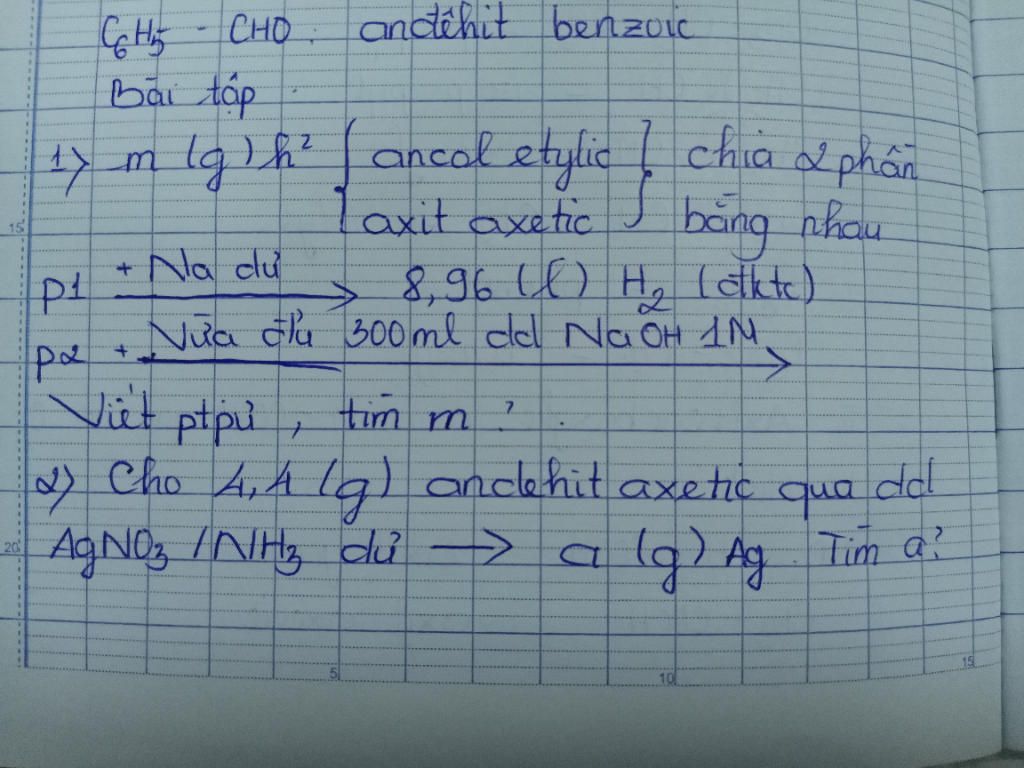 C₆H₅ - CHO : anđêhit benzoic
Bài tập :
1) m (g) h² { ancol etylic } chia 2 phần
{ axit axetic } bằng nhau
p1 + Na dư → 8,96 (l) H₂ (đktc)
p2 + Vừa đủ 300ml dd NaOH 1M →
Viết ptpứ, tìm m ?
2) Cho 4,4 (g) anđehit axetic qua dd
AgNO₃ /NH₃ dư → a (g) Ag. Tìm a?
15
20
5
10
15